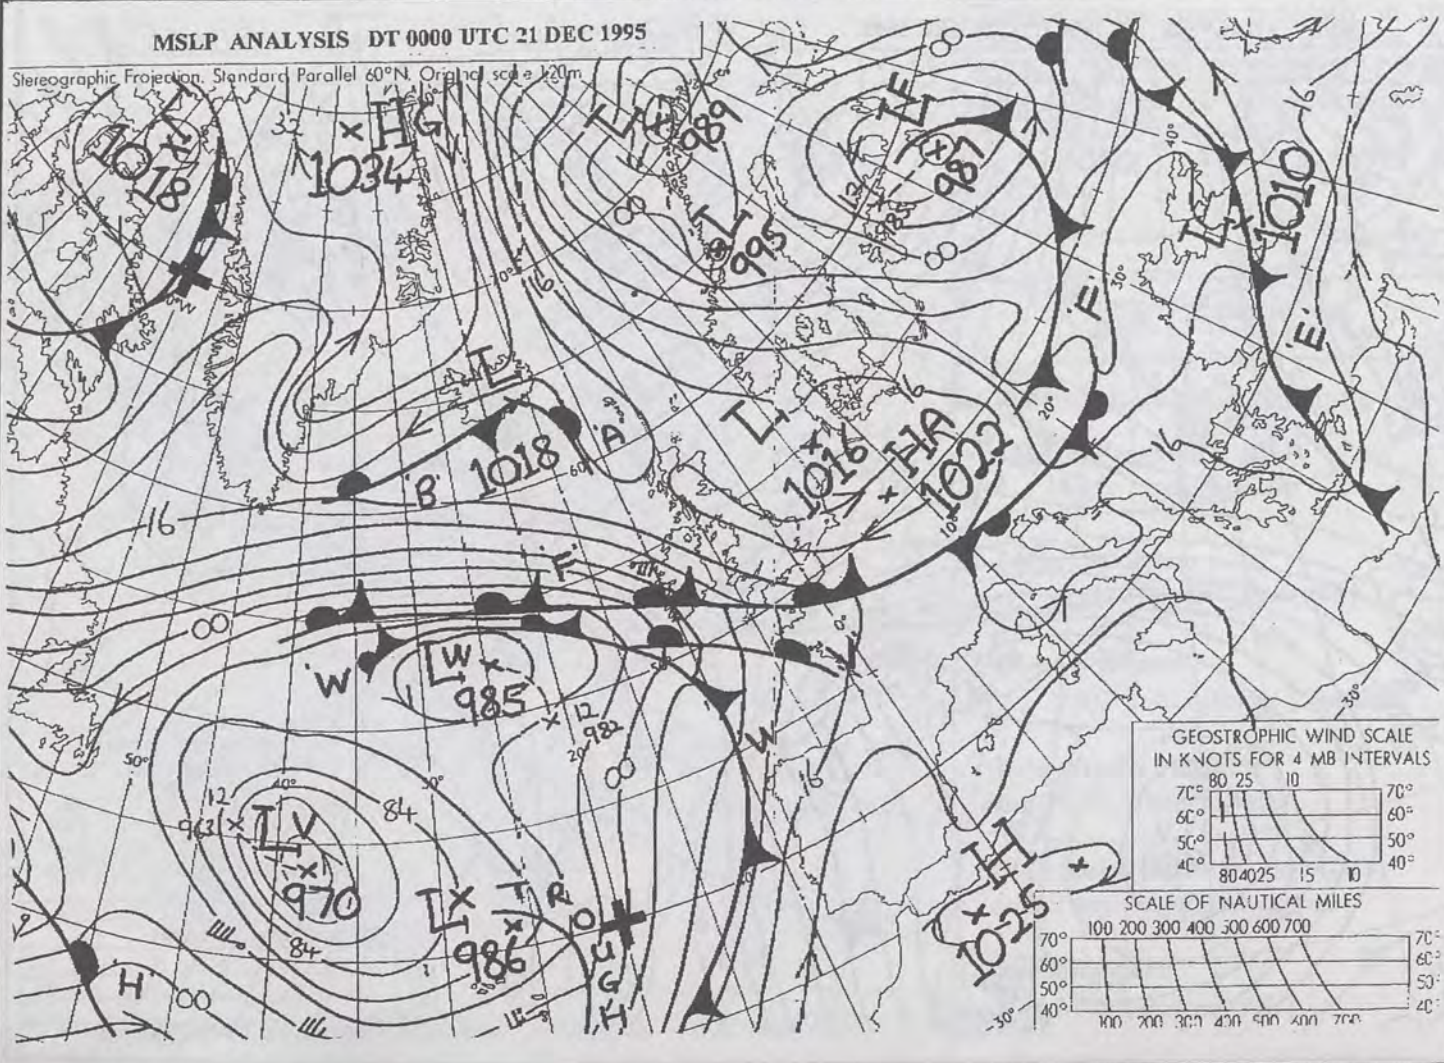 MSLP ANALYSIS DT 0000 UTC 21 DEC 1995
Stereographic Projection. Standard Parallel 60°N. Original scale 1:20m
L
1018
32
H G
1034
L
989
L F
987
00
16
L
1010
L
995
00
12
985
00
40°
30°
'F'
'E'
70°
16
L
1018
60°
'A'
'B'
L
1016
16
HA
1022
20°
16
10°
16
'F'
00
0°
'W'
L W
985
12
982
20°
00
W
16
50°
40°
30°
84
12
963
L V
970
84
L X
986
T R O U G H
'H'
00
H
1025
-30°
-30°
GEOSTROPHIC WIND SCALE
IN KNOTS FOR 4 MB INTERVALS
80 25 10
70° 70°
60° 60°
50° 50°
40° 40°
80 40 25 15 10
SCALE OF NAUTICAL MILES
100 200 300 400 500 600 700
70° 70°
60° 60°
50° 50°
40° 40°
100 200 300 400 500 600 700